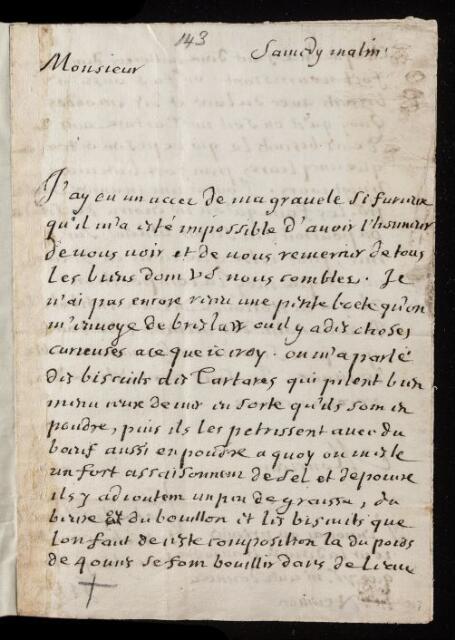 143
Samedy matin
Monsieur
J'ay eu un accez de ma gravele si furieux
qu'il m'a esté impossible d'avoir l'honneur
de vous voir et de vous remercier de tous
les biens dont vs nous comblez. Je
n'ai pas encore receu une petite boete qu'on
m'envoye de ou il y a des choses
curieuses a ce que ie croy. on m'a parlé
des biscuits des Tartares qui pilent bien
menu ceux de mer en sorte qu'ils sont en
poudre, puis ils les petrissent avec du
boeuf aussi en poudre a quoy on mesle
un fort assaisonnemt de sel et de poivre
ils y adioutent un peu de graisse, du
beure et du bouillon et les biscuits que
lon fait de ceste composition la du poids
de 4 onces se font bouillir dans de l'eau